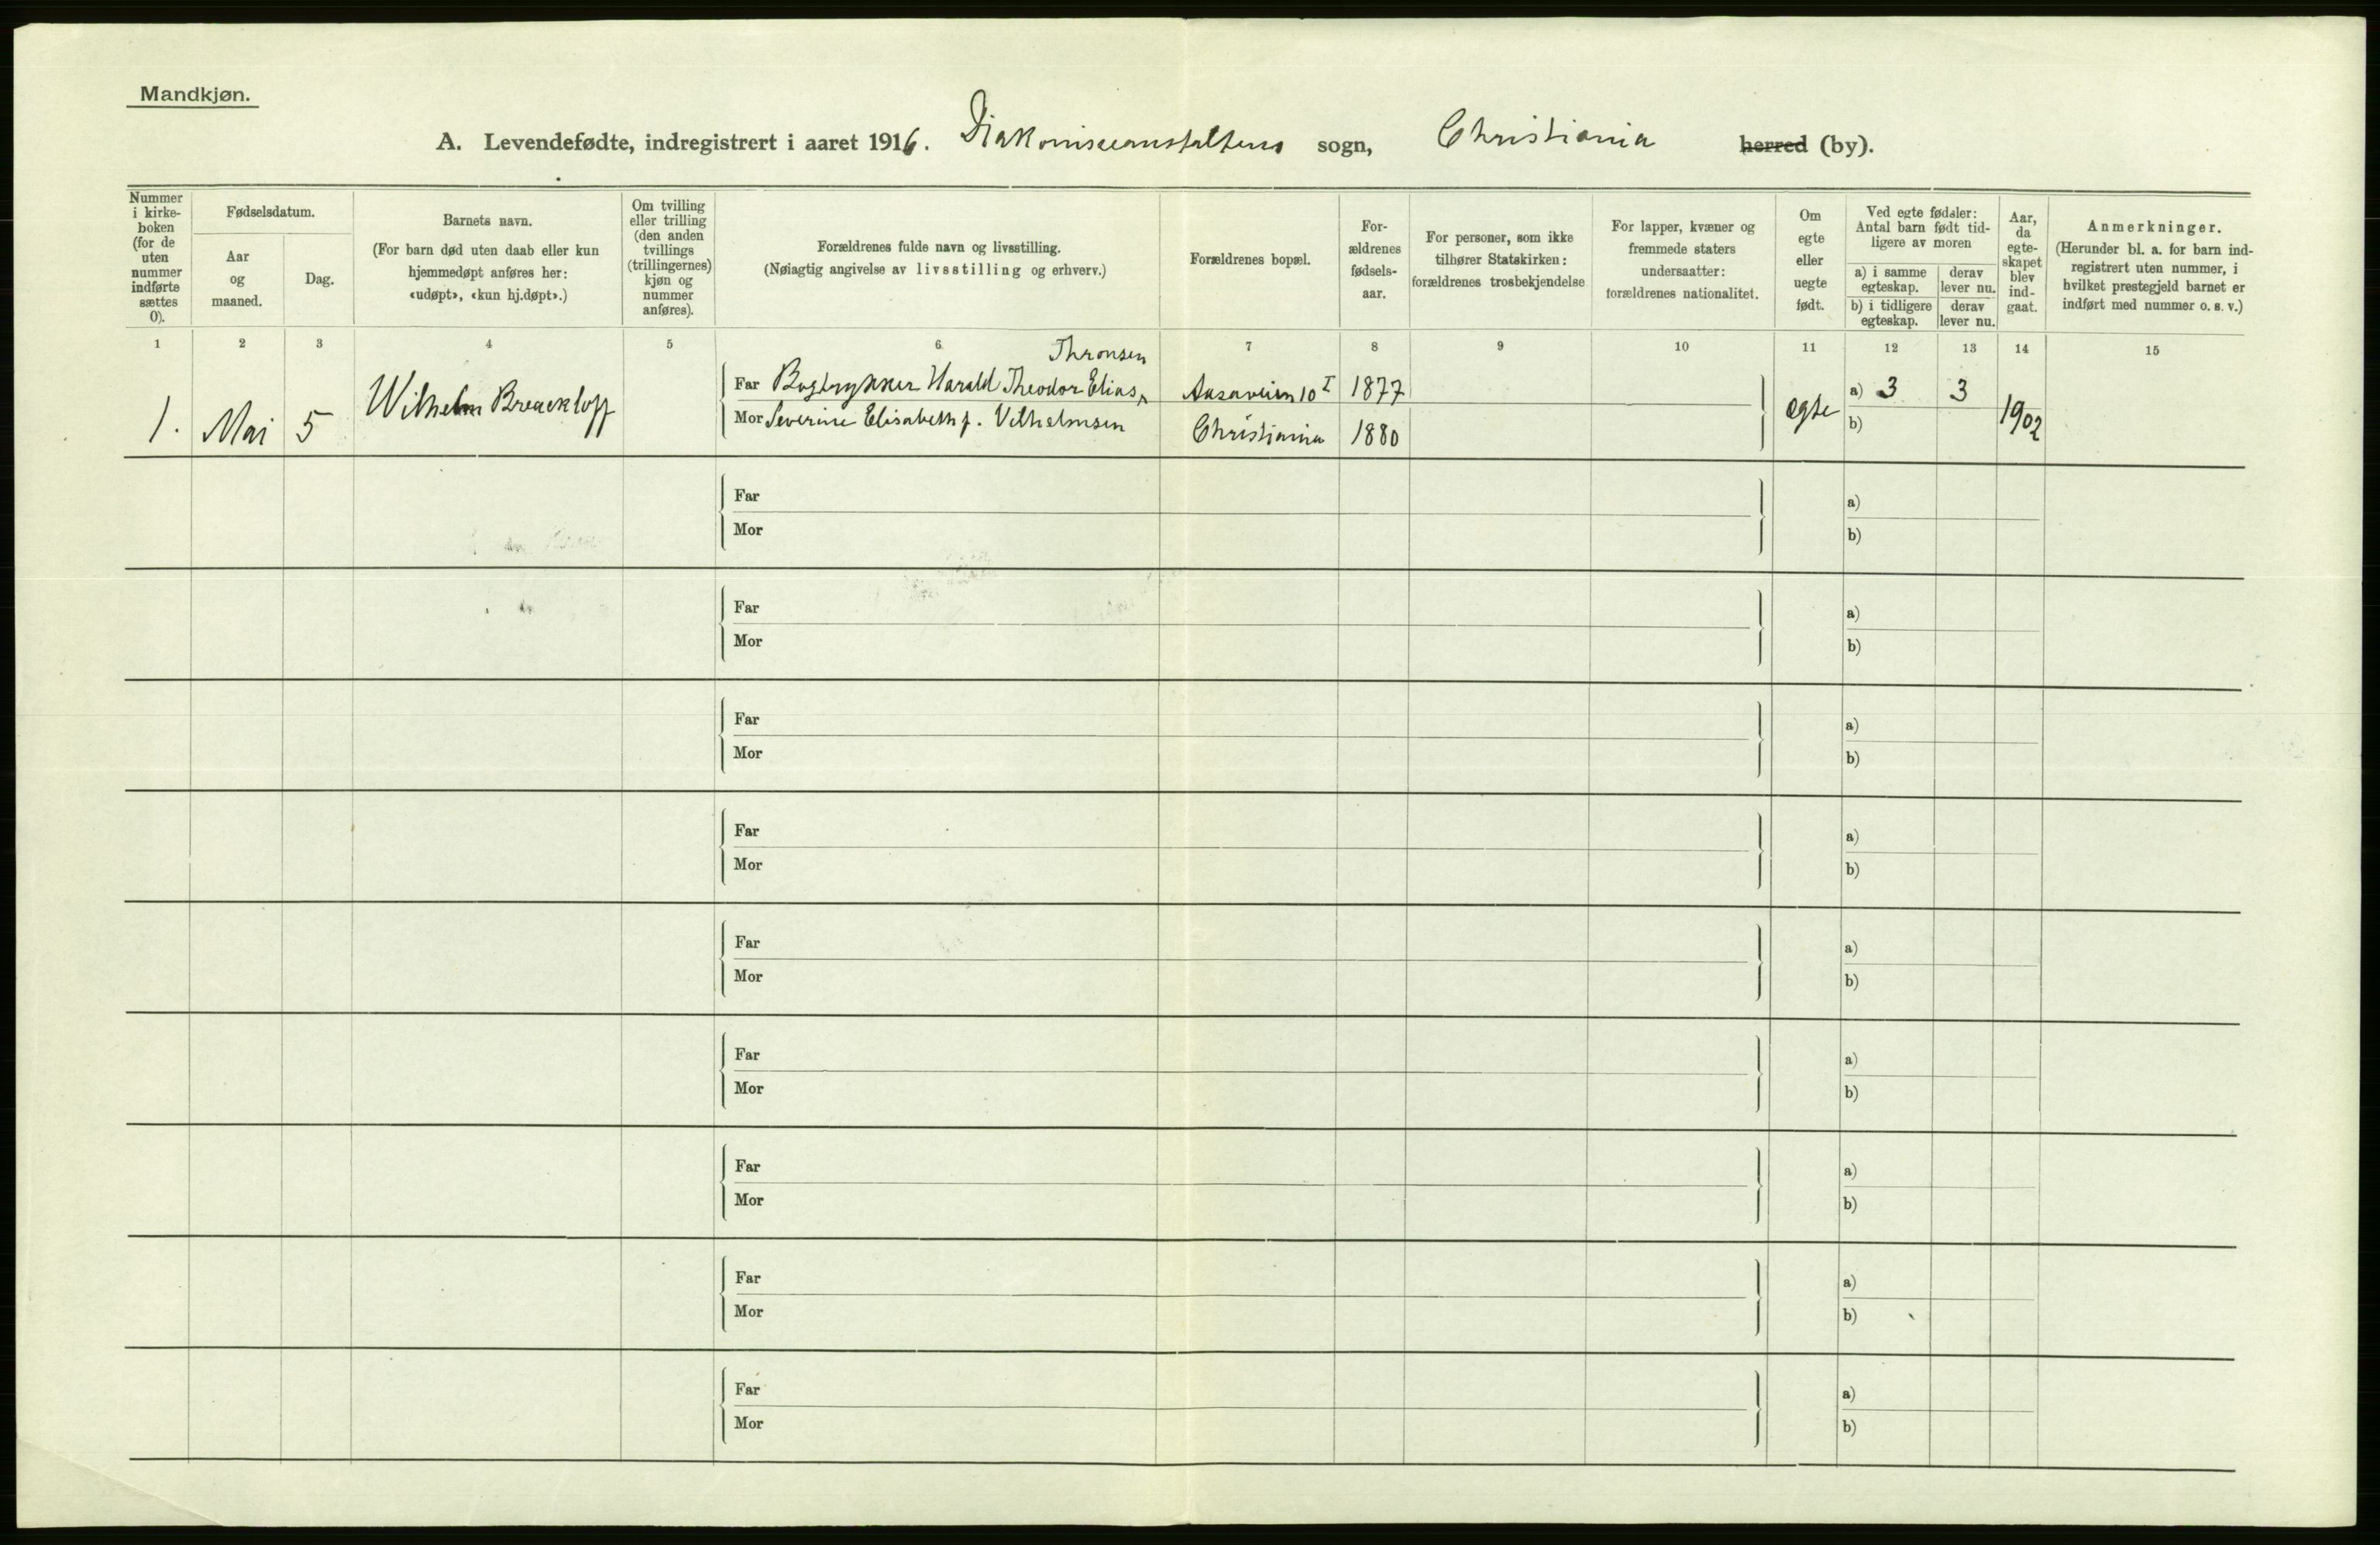 Mandkjøn.
A. Levendefødte, indregistrert i aaret 1916. Diakonisseanstaltens sogn, Christiania herred (by).
Nummer
i kirke-
boken
(for de
uten
nummer
indførte
sættes
0).
Fødselsdatum.
Aar
og
maaned.
Dag.
Barnets navn.
(For barn død uten daab eller kun
hjemmedøpt anføres her:
«udøpt», «kun hj.døpt».)
Om tvilling
eller trilling
(den anden
tvillings
(trillingernes)
kjøn og
nummer
anføres).
Forældrenes fulde navn og livsstilling.
(Nøiagtig angivelse av livsstilling og erhverv.)
Forældrenes bopæl.
For-
ældrenes
fødsels-
aar.
For personer, som ikke
tilhører Statskirken:
forældrenes trosbekjendelse
For lapper, kvæner og
fremmede staters
undersaatter:
forældrenes nationalitet.
Om
egte
eller
uegte
født.
Ved egte fødsler:
Antal barn født tid-
ligere av moren
a) i samme
egteskap.
derav
lever nu.
b) i tidligere
egteskap.
derav
lever nu.
Aar,
da
egte-
skapet
blev
ind-
gaat.
Anmerkninger.
(Herunder bl. a. for barn ind-
registrert uten nummer, i
hvilket prestegjeld barnet er
indført med nummer o. s. v.)
1 2 3 4 5 6 7 8 9 10 11 12 13 14 15
Thronsen
1. Mai 5 Wilhelm
Far Bogtrykker Harald Theodor Elias 10 I 1877
Mor Severine Elisabeth f. Vilhelmsen Christiania 1880
egte a) 3 3 1902
b)
Far a)
Mor b)
Far a)
Mor b)
Far a)
Mor b)
Far a)
Mor b)
Far a)
Mor b)
Far a)
Mor b)
Far a)
Mor b)
Far a)
Mor b)
Far a)
Mor b)